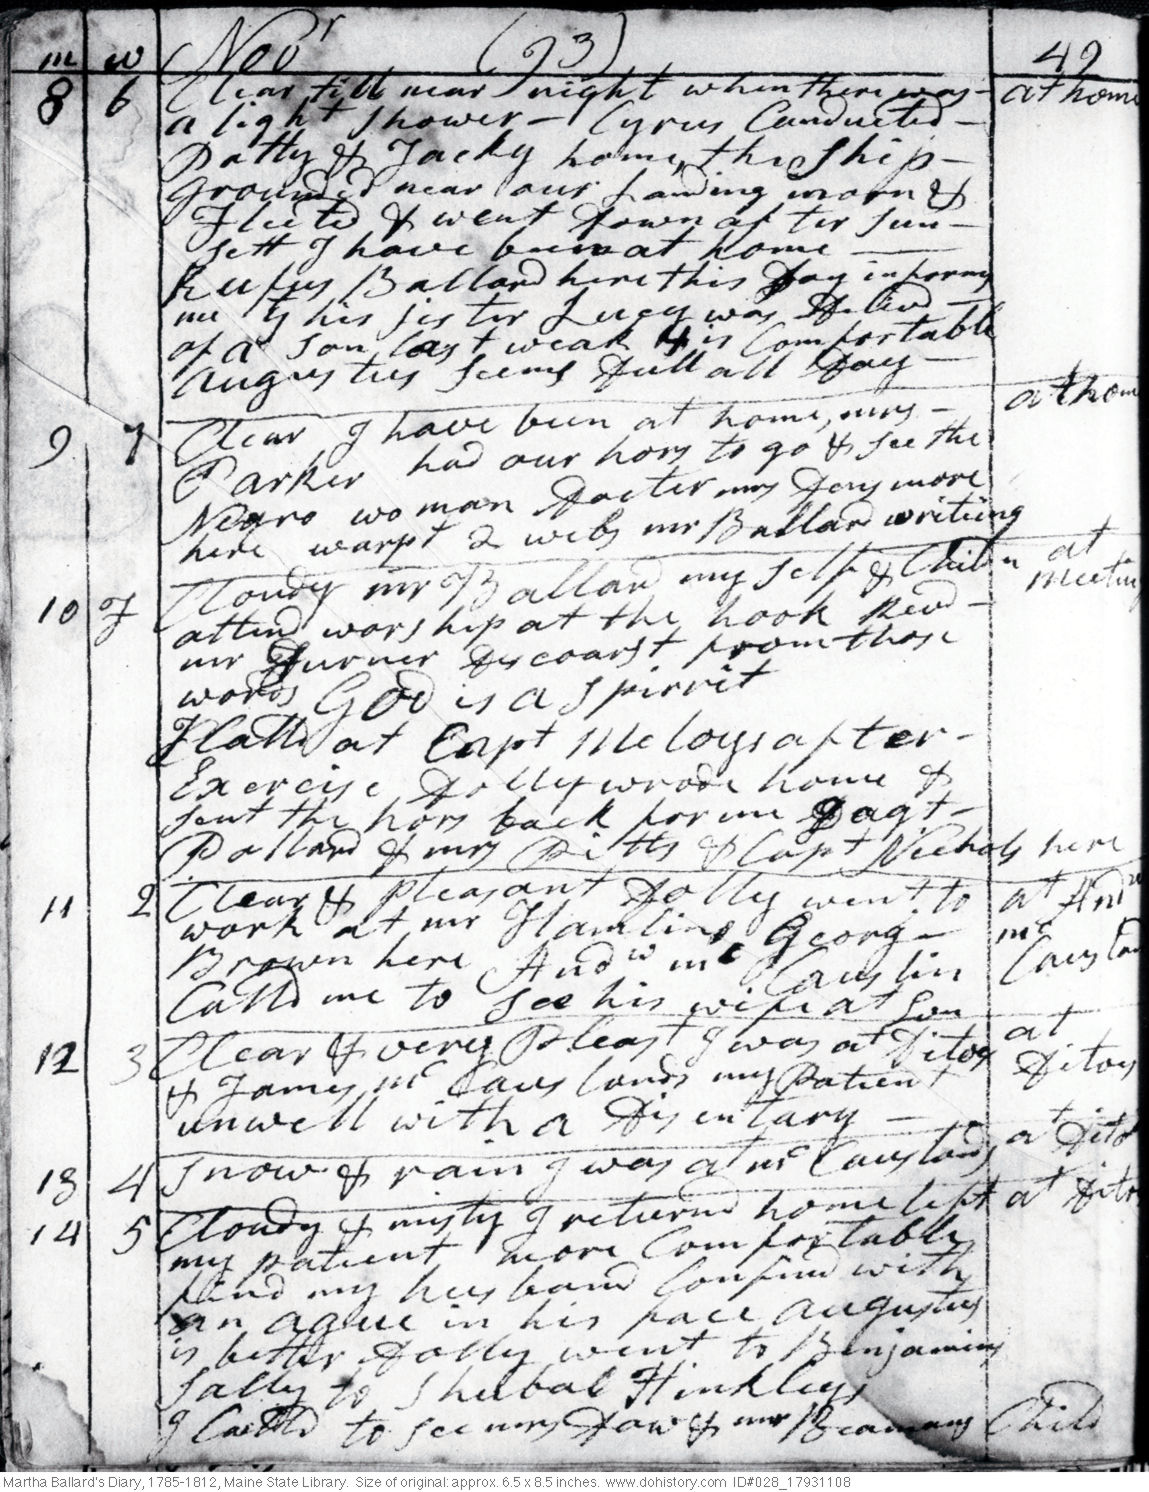 m w Novr (93) 49
8 6 Clear till near night when there was- at home
a light shower- Cyrus Conducted-
Patty & Jacky home, the ship-
grounded near our Landing morn &
fleeted & went down after sun-
sett I have been at home
Rufus Ballard here this Day informs
me ys his sister Lucy was delivd
of a son last weak & is Comfortable
Augustus seems dull all Day
9 7 Clear I have been at home, mrs- at home
Parker had our hors to go & see the
Negro woman Docter mrs Densmore
here warpt 2 webs mr Ballard writing
10 F Cloudy mr Ballard my self & Childn at
attend worship at the hook Revd- Meeting
mr Turner discoarst from those
words God is a spirrit
I Calld at Capt Meloys after-
Exercise Dolly wrode home &
sent the hors back for me Dagt-
Pollard & mrs Pitts & Capt Nichols here
11 2 Clear & pleasant Dolly went to at Andw
work at mr Hamlins Georg- mc
Brown here Andw mc Causlin Causland
Calld me to see his wife at Son
12 3 Clear & very Pleast I was at Ditos at
& James mc Causlands my Patient Ditoes
unwell with a Disentary
13 4 snow & rain I was at mc Causlands at Ditos
14 5 Cloudy & misty I returnd home left at Ditos
my patient more Comfortable
find my husband Confind with
an ague in his face Augustus
is better Dolly went to Benjamins
Sally to Shubal Hinkleys
I Calld to see mrs Daw & mr Beamans Child
Martha Ballard's Diary, 1785-1812, Maine State Library. Size of original: approx. 6.5 x 8.5 inches. www.dohistory.com ID#028_17931108